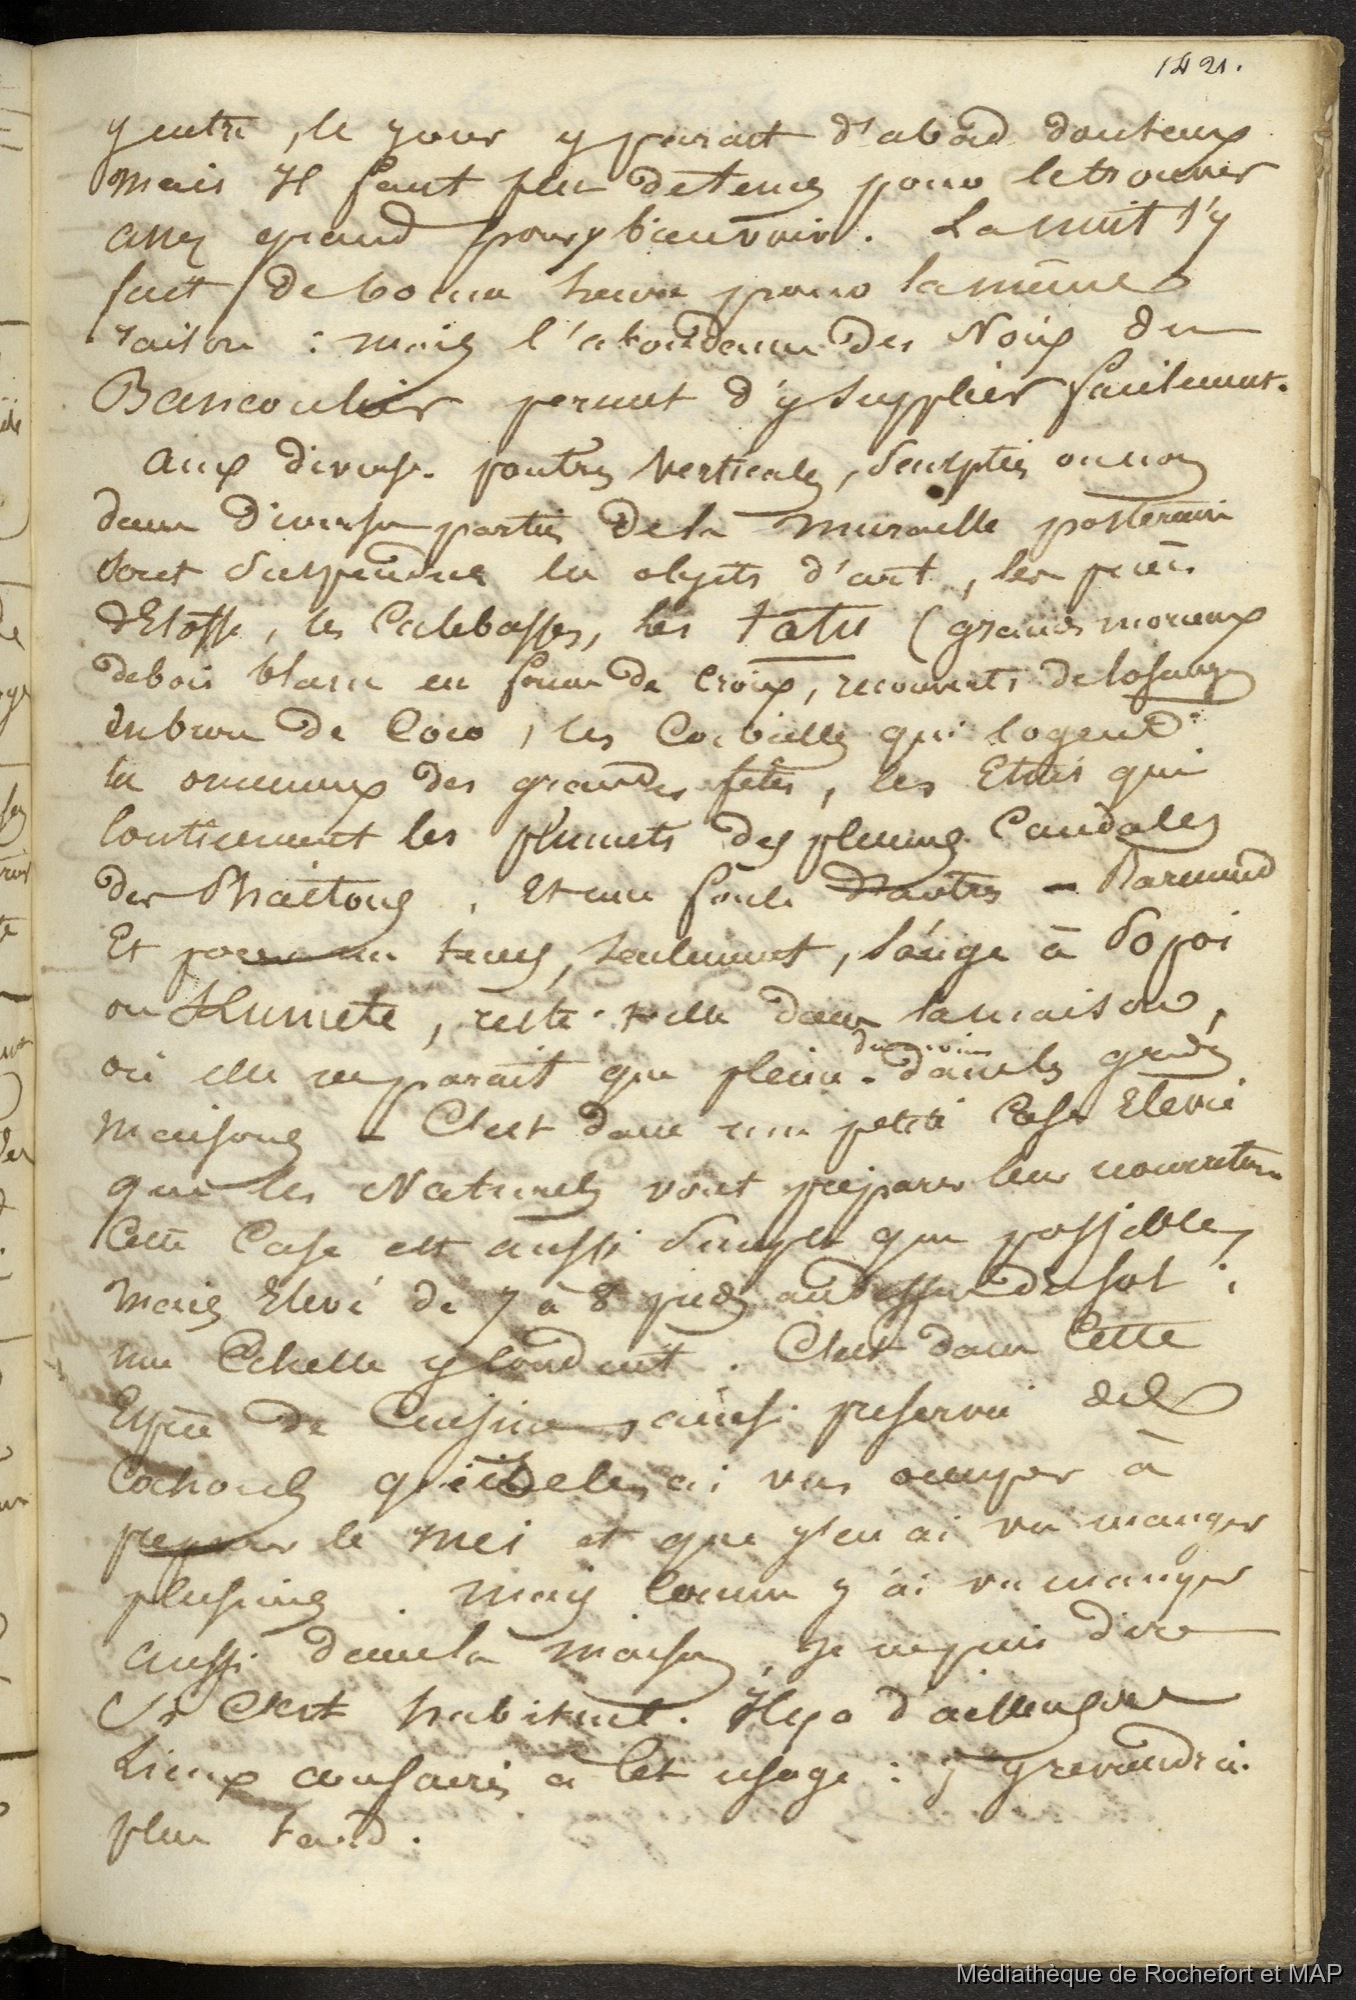 1421.
y entre, le jour y parait d'abord douteux
mais Il faut peu detems pour letrouver
assez grand pour y bien voir. La nuit s'y
fait de bonne heure pour la même
raison : mais l'abondance des Noix du
Bancoulier permet d'y suppléer facilement.
aux diverses poutres verticales, sculptées ou non
dans diverses parties dela muraille posterieure
sont suspendus les objets d'art, les pièces
d'Etoffe, les Calebasses, les tatu (grands morceaux
debois blanc en forme de Croix, recouverts de losanges
en brou de Coco, les Corbeilles qui logent
les ornemens des grandes fêtes, les Etuis qui
contiennent les plumets des plumes Caudales
des Phaétons, Et une foule d'autres – Rarement
Et pour un tems, seulement, l'auge à Popoi
ou Kumete, reste-t-elle dans lamaison,
où elle ne parait que pleine dans les grandes
maisons – C'est dans une petite Case Elevée
que les Naturels vont préparer leur nourriture
Cette Case est aussi simple que possible,
mais Elevé de 7 à 8 pieds audessus du sol ;
une Echelle y conduit. C'est dans Cette
Espèce de Cuisine, ainsi preservée des
Cochons que je les ai vus occuper à
preparer le mei et que j'en ai vu manger
plusieurs. mais comme j'ai vu manger
aussi dans la maison, Je ne puis dire
Si C'est habituel. Il y a d'ailleurs des
Lieux consacrés à Cet usage : j'y reviendrai
plus tard.
Médiathèque de Rochefort et MAP